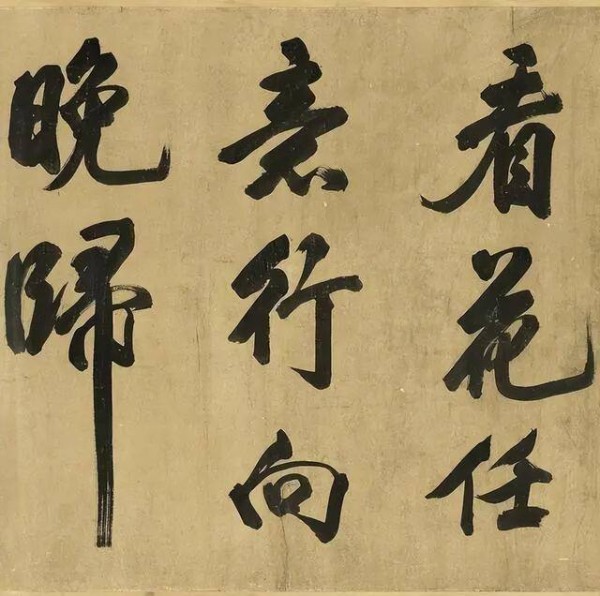 看花任
意行向
晚歸